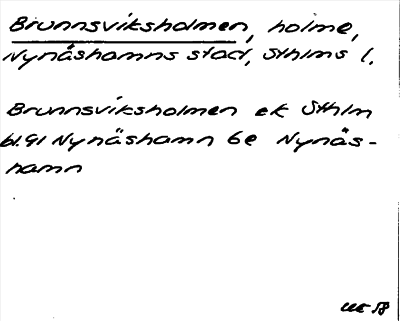 Brunnsviksholmen, holme,
Nynäshamns stad, Sthlms l.
Brunnsviksholmen ek Sthlm
bl.91 Nynäshamn 6e Nynäs-
hamn
58